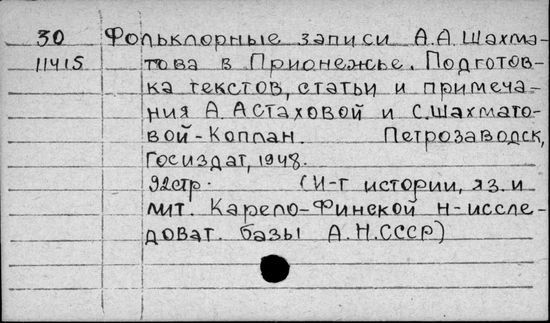 30 Фольклорные записи А.А. Шахма-
11415 това в Прионежье. Подготов-
ка текстов, статьи и примеча-
ния А. Астаховой и С. Шахмато-
вой-Коплан. Петрозаводск,
Госиздат, 1948.
92стр. (И-т истории, яз. и
лит. Карело-Финской н-иссле-
доват. базы А.Н.СССР)